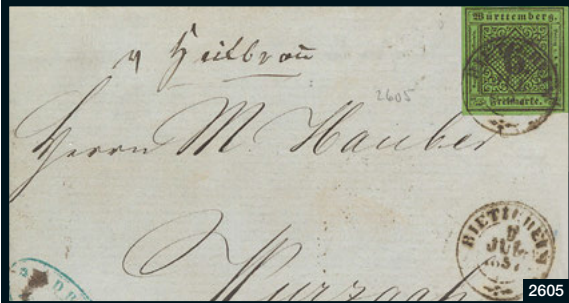 Württemberg.
6
Freimarke.
Heilbron̄
2605
Herrn M Hauber
BIETIGHEIM
JUL
Wurzach
2605